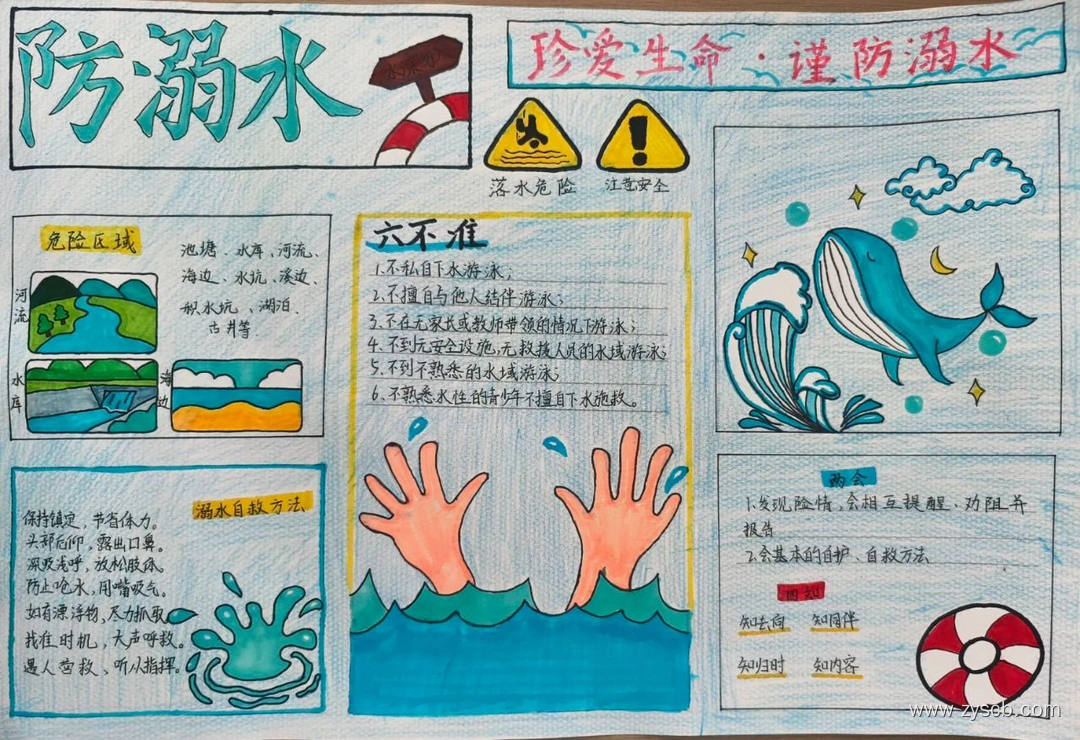 防溺水
珍爱生命·谨防溺水
落水危险
注意安全
危险区域
池塘、水库、河流、
海边、水坑、溪边、
积水坑、湖泊、
古井等.
河流
水库
海边
六不准
1.不私自下水游泳；
2.不擅自与他人结伴游泳；
3.不在无家长或教师带领的情况下游泳；
4.不到无安全设施,无救援人员的水域游泳；
5.不到不熟悉的水域游泳；
6.不熟悉水性的青少年不擅自下水施救。
溺水自救方法
保持镇定，节省体力。
头部后仰，露出口鼻。
深吸浅呼，放松肢体。
防止呛水，用嘴吸气。
如有漂浮物，尽力抓取。
找准时机，大声呼救。
遇人营救、听从指挥。
两会
1.发现险情,会相互提醒、劝阻并
报告
2.会基本的自护、自救方法
四知
知去向 知同伴
知归时 知内容
www.zyscb.com